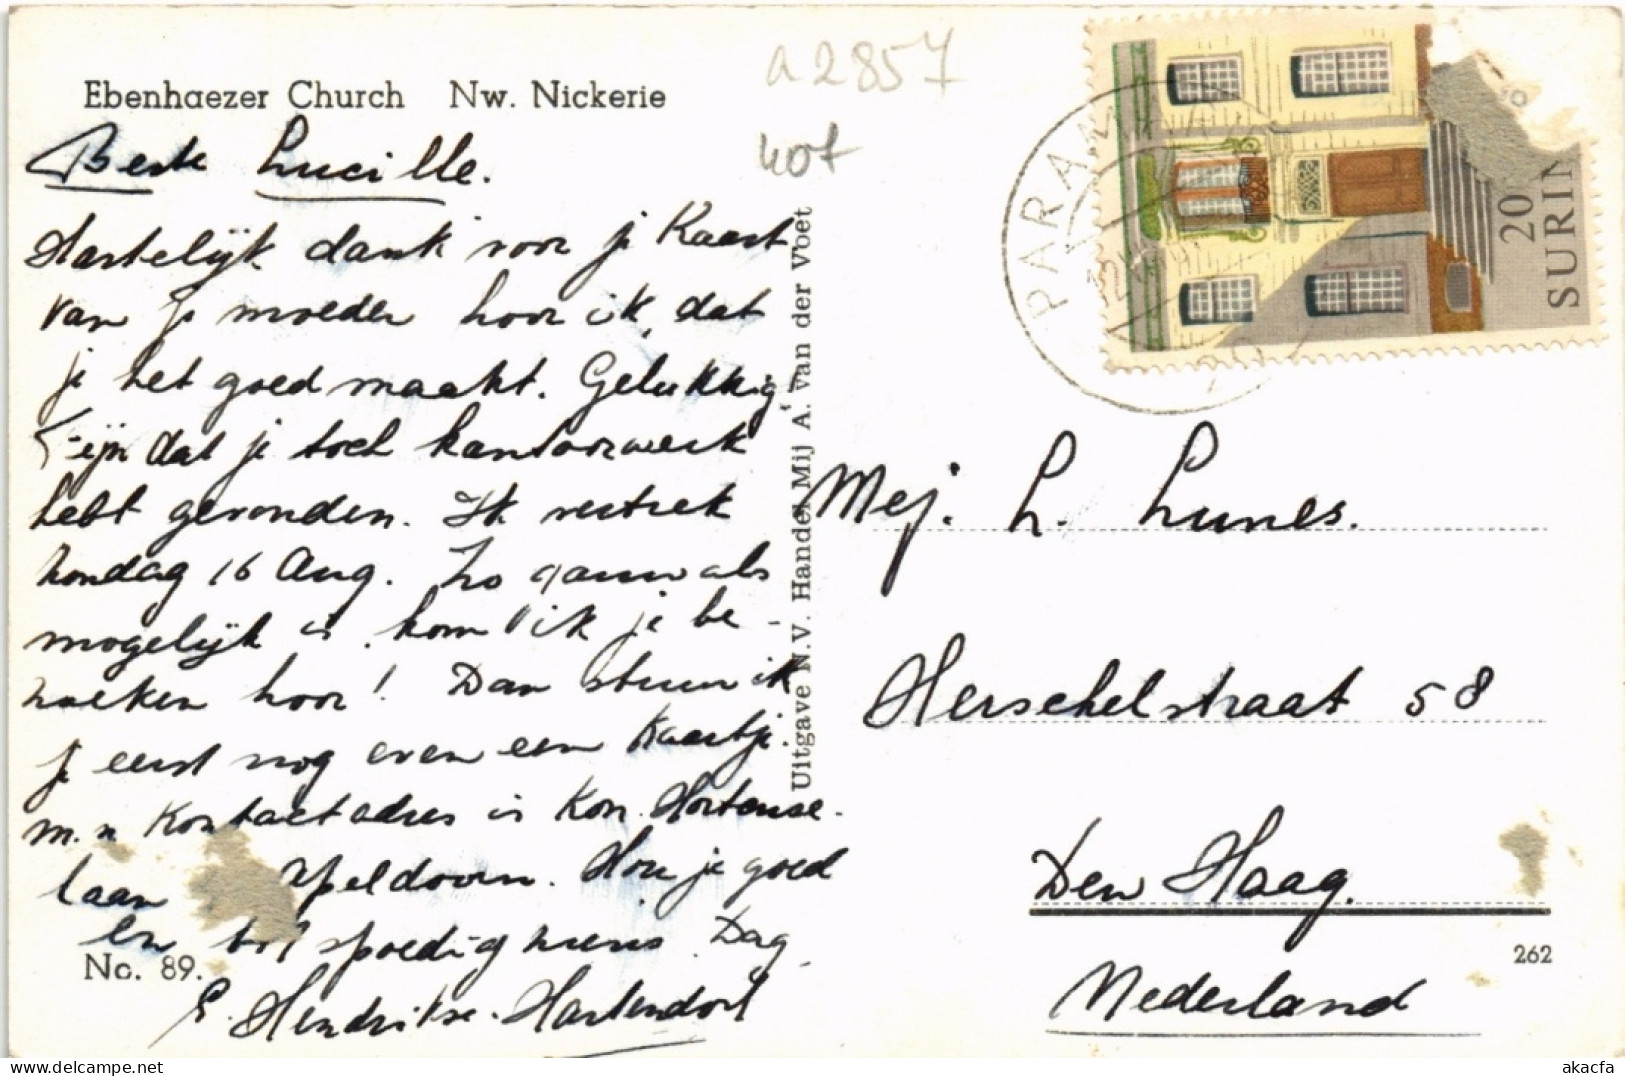 Ebenhaezer Church Nw. Nickerie
a2857
Beste Lucille.
Hartelijk dank voor je Kaart
van je moeder hoor ik, dat
je het goed maakt. Gelukkig
Fijn dat je toch kantoorwerk
hebt gevonden. Ik vertrek
zondag 16 Aug. Zo gauw als
mogelijk is kom ik je be-
zoeken hoor! Dan stuur ik
je eerst nog even een Kaartje.
m.n Kontactadres is Kon. Hortense-
laan Apeldoorn. Hou je goed
en tot spoedig ziens. Dag
E. Hendrikse-Hartendorf
No. 89.
Uitgave N.V. Handel Mij A. van der Voet
PARAMARIBO
20
SURIN
Mej. L. Lunes.
Herschelstraat 58
Den Haag.
262
Nederland
akacfa